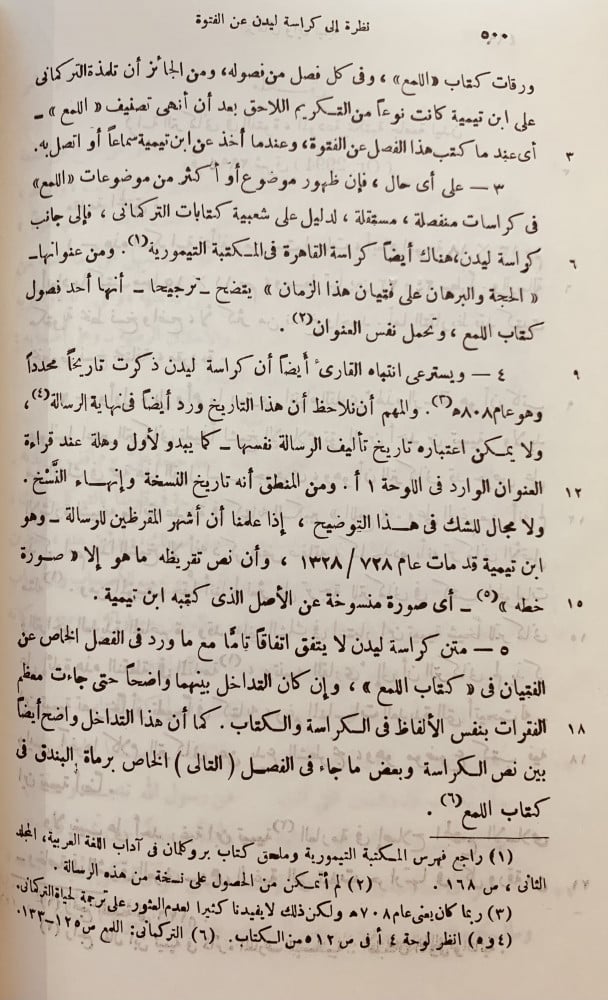 ٥٠٠
نظرة إلى كراسة ليدن عن الفتوة
ورقات كتاب «اللمع» ، وفى كل فصل من فصوله، ومن الجائز أن تلمذة التركمانى
على ابن تيمية كانت نوعاً من التكريم اللاحق بعد أن أنهى تصنيف « اللمع » –
أى عند ما كتب هذا الفصل عن الفتوة، وعندما أخذ عن ابن تيمية سماعاً أو اتصل به. ٣
٣ – على أى حال ، فإن ظهور موضوع أو أكثر من موضوعات «اللمع»
فى كراسات منفصلة ، مستقلة ، لدليل على شعبية كتابات التركمانى ، فإلى جانب
كراسة ليدن، هناك أيضاً كراسة القاهرة فى المكتبة التيمورية(١). ومن عنوانها – ٦
« الحجة والبرهان على فقيان هذا الزمان » يتضح – ترجيحا – أنها أحد فصول
كتاب اللمع ، وتحمل نفس العنوان(٢) .
٤ – ويسترعى انتباه القارئ أيضاً أن كراسة ليدن ذكرت تاريخاً محدداً ٩
وهو عام ٨٠٨ﻫ(٣). والمهم أن نلاحظ أن هذا التاريخ ورد أيضاً فى نهاية الرسالة(٤)،
ولا يمكن اعتباره تاريخ تأليف الرسالة نفسها – كما يبدو لأول وهلة عند قراءة
العنوان الوارد فى اللوحة ١ أ . ومن المنطق أنه تاريخ النسخة وإنهاء النَّسْخ . ١٢
ولا مجال للشك فى هذا التوضيح ، إذا علمنا أن أشهر المقرظين للرسالة – وهو
ابن تيمية قد مات عام ٧٢٨ / ١٣٢٨ ، وأن نص تقريظه ما هو إلا « صورة
خطه »(٥) – أى صورة منسوخة عن الأصل الذى كتبه ابن تيمية . ١٥
٥ – متن كراسة ليدن لا يتفق اتفاقاً تامًّا مع ما ورد فى الفصل الخاص عن
الفقيان فى « كتاب اللمع » ، وإن كان التداخل بينهما واضحاً حتى جاءت معظم
الفقرات بنفس الألفاظ فى الكراسة والكتاب . كما أن هذا التداخل واضح أيضاً ١٨
بين نص الكراسة وبعض ما جاء فى الفصل ( التالى ) الخاص برماة البندق فى
كتاب اللمع(٦) .
(١) راجع فهرس المكتبة التيمورية وملحق كتاب بروكلمان فى آداب اللغة العربية، المجلد
الثانى ، ص ١٦٨ . (٢) لم أتمكن من الحصول على نسخة من هذه الرسالة .
(٣) ربما كان يعنى عام ٧٠٨ﻫ ولكن ذلك لا يفيدنا كثيرا لعدم العثور على ترجمة لحياة التركمانى.
(٤ و ٥) انظر لوحة ٤ أ فى ص ٥١٢ من الكتاب. (٦) التركمانى: اللمع ص ١٢٥–١٣٣.